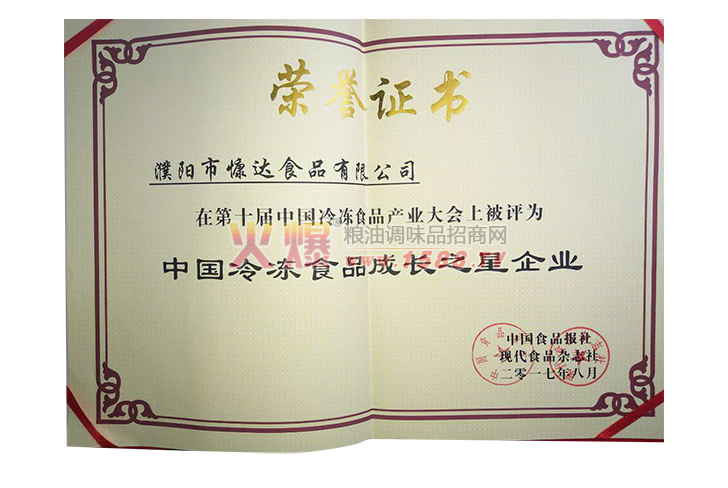 荣誉证书
濮阳市慷达食品有限公司
在第十届中国冷冻食品产业大会上被评为
火爆 粮油调味品招商网
www.1588.TV
中国冷冻食品成长之星企业
中国食品报社
现代食品杂志社
二零一七年八月